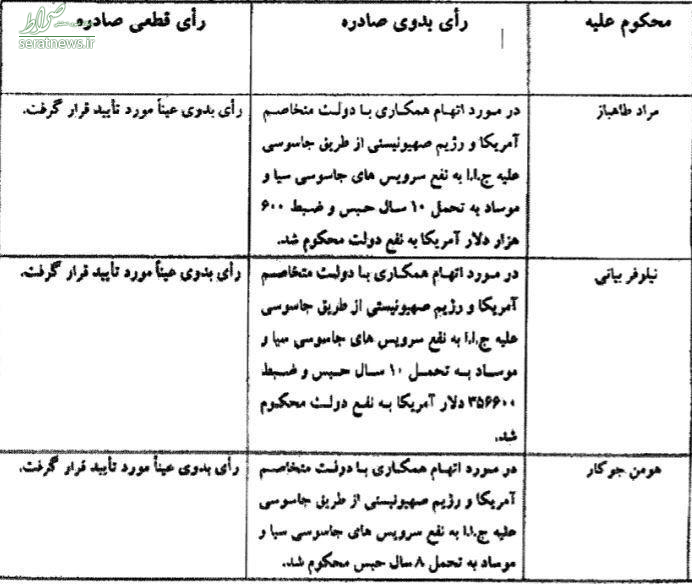 محکوم علیه
رأی بدوی صادره
رأی قطعی صادره
صراط
seratnews.ir
مراد طاهباز
در مورد اتهام همکاری با دولت متخاصم
آمریکا و رژیم صهیونیستی از طریق جاسوسی
علیه ج.ا.ا به نفع سرویس های جاسوسی سیا و
موساد به تحمل ۱۰ سال حبس و ضبط ۶۰۰
هزار دلار آمریکا به نفع دولت محکوم شد.
رأی بدوی عیناً مورد تأیید قرار گرفت.
نیلوفر بیانی
در مورد اتهام همکاری با دولت متخاصم
آمریکا و رژیم صهیونیستی از طریق جاسوسی
علیه ج.ا.ا به نفع سرویس های جاسوسی سیا و
موساد به تحمل ۱۰ سال حبس و ضبط
۳۵۶۶۰۰ دلار آمریکا به نفع دولت محکوم
شد.
رأی بدوی عیناً مورد تأیید قرار گرفت.
هومن جوکار
در مورد اتهام همکاری با دولت متخاصم
آمریکا و رژیم صهیونیستی از طریق جاسوسی
علیه ج.ا.ا به نفع سرویس های جاسوسی سیا و
موساد به تحمل ۸ سال حبس محکوم شد.
رأی بدوی عیناً مورد تأیید قرار گرفت.